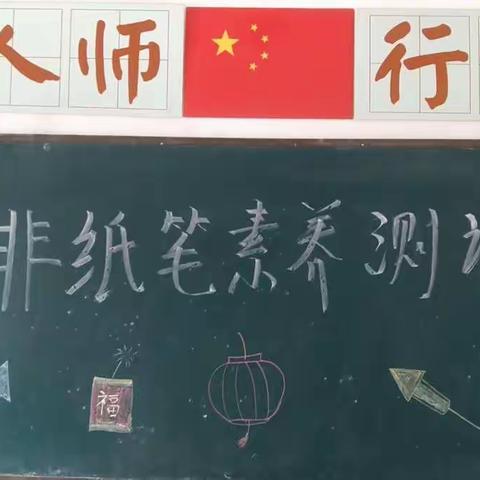 人师 行
非纸笔素养测
福